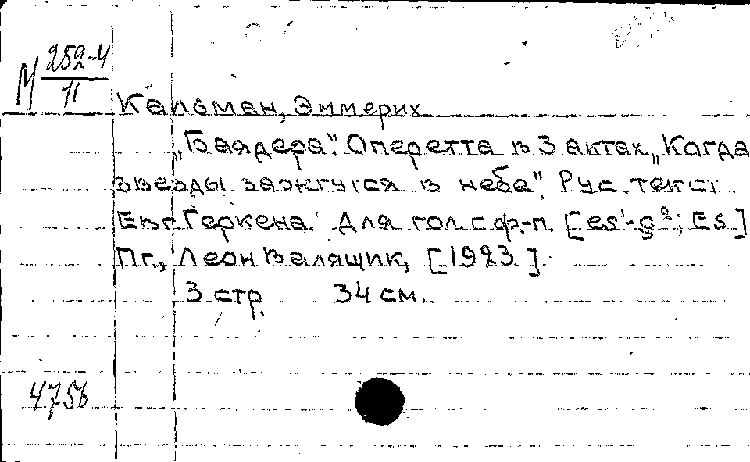 М 252-4
11
Кальман, Эммерих
„Баядера". Оперетта в 3 актах „Когда
звезды зажгутся в небе". Рус. текст
Евг. Геркена. Для гол. с ф-п. [es¹-g²; Es]
Пг., Леон Валящик, [1923].
3 стр. 34 см.
4756